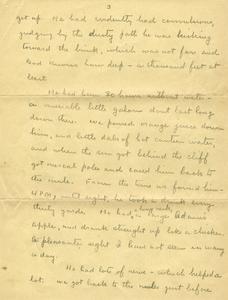 3
get up. He had evidently had convulsions,
judging by the dusty path he was kicking
toward the brink, which was not far and
God knows how deep - a thousand feet at
least.
He had been 30 hours without water -
a miserable little galoon dont last long
down there. We poured orange juice down
him, and little dabs of hot canteen water,
and when the sun got behind the cliff
got mescal poles and eased him back to
the mule. From the time we found him -
4 P.M., until night, he took a drink every
thirty yards. He had a Adams
apple, and drank straight up like a chicken.
A pleasanter sight I have not seen in many
a day.
He had lots of nerve - which helped a
lot. We got back to the mules just before